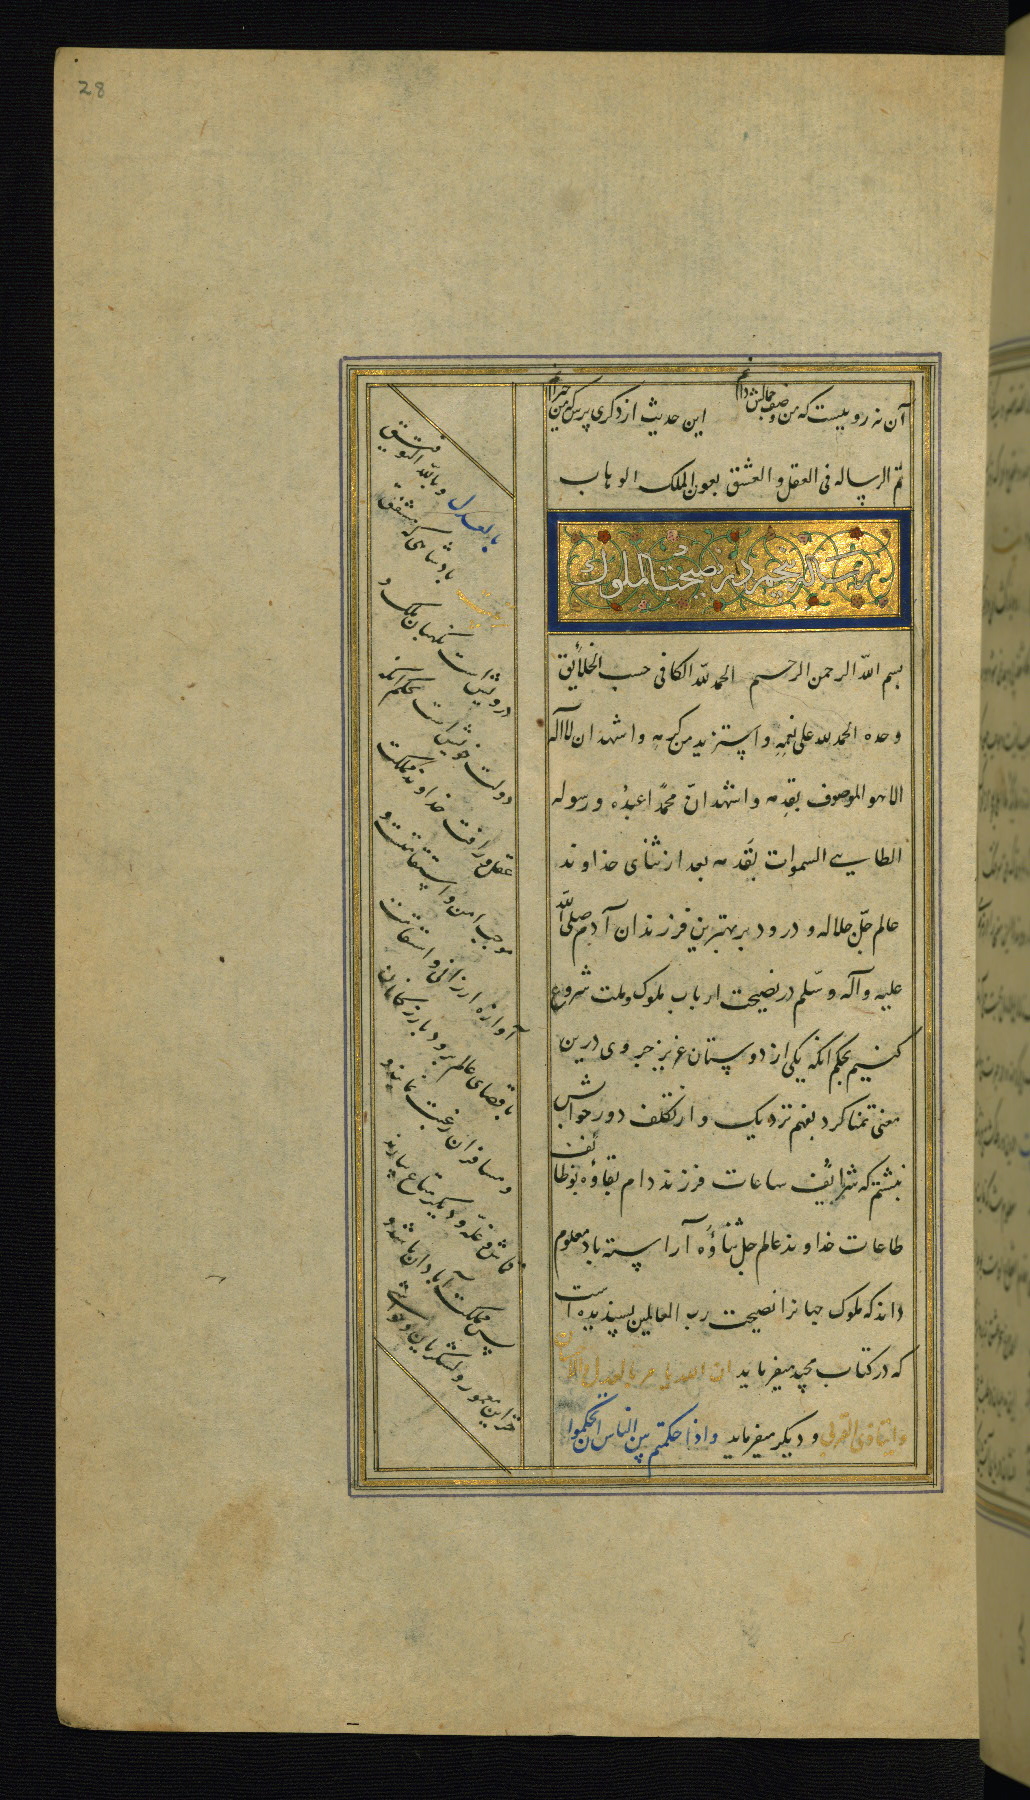 28
آن نه رویست که من وصف جمالش دانم این حدیث از دگری پرس که من حیرانم
تم الرساله فی العقل و العشق بعون الملک الوهاب
رساله پنجم در نصیحة الملوک
بسم الله الرحمن الرحیم الحمد لله الکافی حسب الخلائق
وحده الحمد لله علی نعمه و استزید من کرمه و اشهد ان لا اله
الا هو الموصوف بقدمه و اشهد ان محمدا عبده و رسوله
الطایی السموات بقدمه بعد از ثنای خداوند
عالم جل جلاله و درود بر بهترین فرزندان آدم صلی الله
علیه و آله و سلم در نصیحت ارباب ملوک و ملت شروع
کنیم بحکم انکه یکی از دوستان عزیز جزوی درین
معنی تمنا کرد بفهم نزدیک و از تکلف دور جوابش
نبشتم که شرایف ساعات فرزند دام بقاؤه بوظائف
طاعات خداوند عالم جل ثناؤه آراسته باد معلوم
داند که ملوک جهانرا نصیحت رب العالمین پسندیده است
که در کتاب مجید میفرماید ان الله یامر بالعدل و الاحسان
و ایتاء ذی القربی و دیکر میفرماید و اذا حکمتم بین الناس ان تحکموا
بالعدل و بالله التوفیق
پادشاهی که مشفق
درویش است نکهبان ملک و
دولت خویش است بحکم انکه
عدل و رافت خداوند مملکت
موجب امن و استقامت و
آوازه ارزانی و استقامت
باقصای عالم برود بازرکانان
و مسافران رغبت نمایند و
قماش و غله و دیکر متاع بیارند
پس مملکت آبادان باشد و
خزاین معمور و لشکریان و حواشی